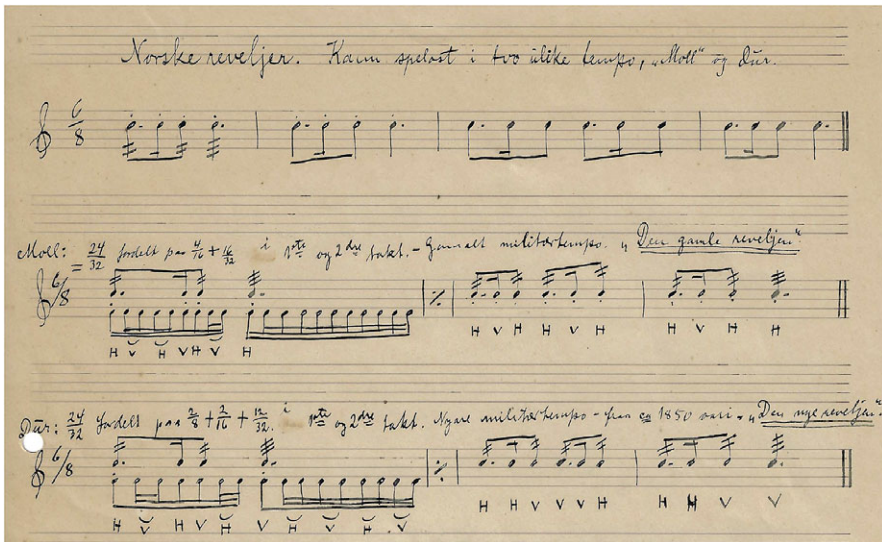 Norske reveljer. Kann spelast i tvo ulike tempo, „Moll" og Dur.
6/8
Moll: 24/32 fordelt paa 4/16 + 16/32 i 1ste og 2dre takt. - Gamalt militærtempo. „Den gamle reveljen".
= 6/8
H V H V H V H H V H H V H H V H H
Dur: 24/32 fordelt paa 2/8 + 2/16 + 12/32 i 1ste og 2dre takt. Nyare militærtempo - fraa ca 1850 „Den nye reveljen".
6/8
H V H V H V H V H V H H V V V H H H V V